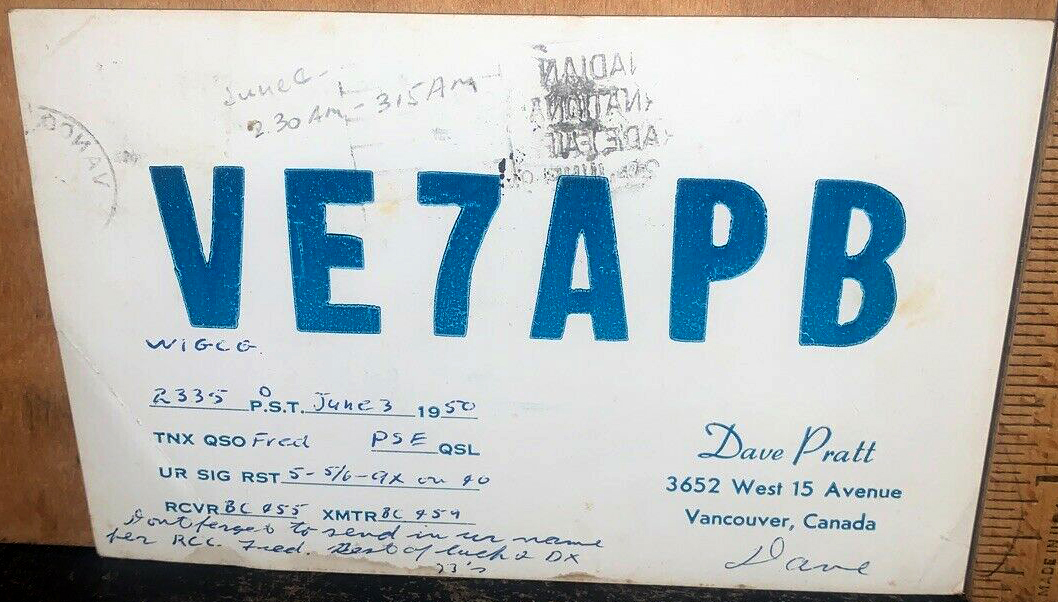 June 2 -
2.30 AM - 3.15 AM
VANCO
VE7APB
W1GCG.
2335 P.S.T. June 3 1950
TNX QSO Fred PSE QSL
UR SIG RST 5-5/6-9X on 40
RCVR BC 455 XMTR BC 459
Dont forget to send in ur name
fer RCC Fred. Best of luck & DX
73's
Dave Pratt
3652 West 15 Avenue
Vancouver, Canada
Dave
MADE IN U